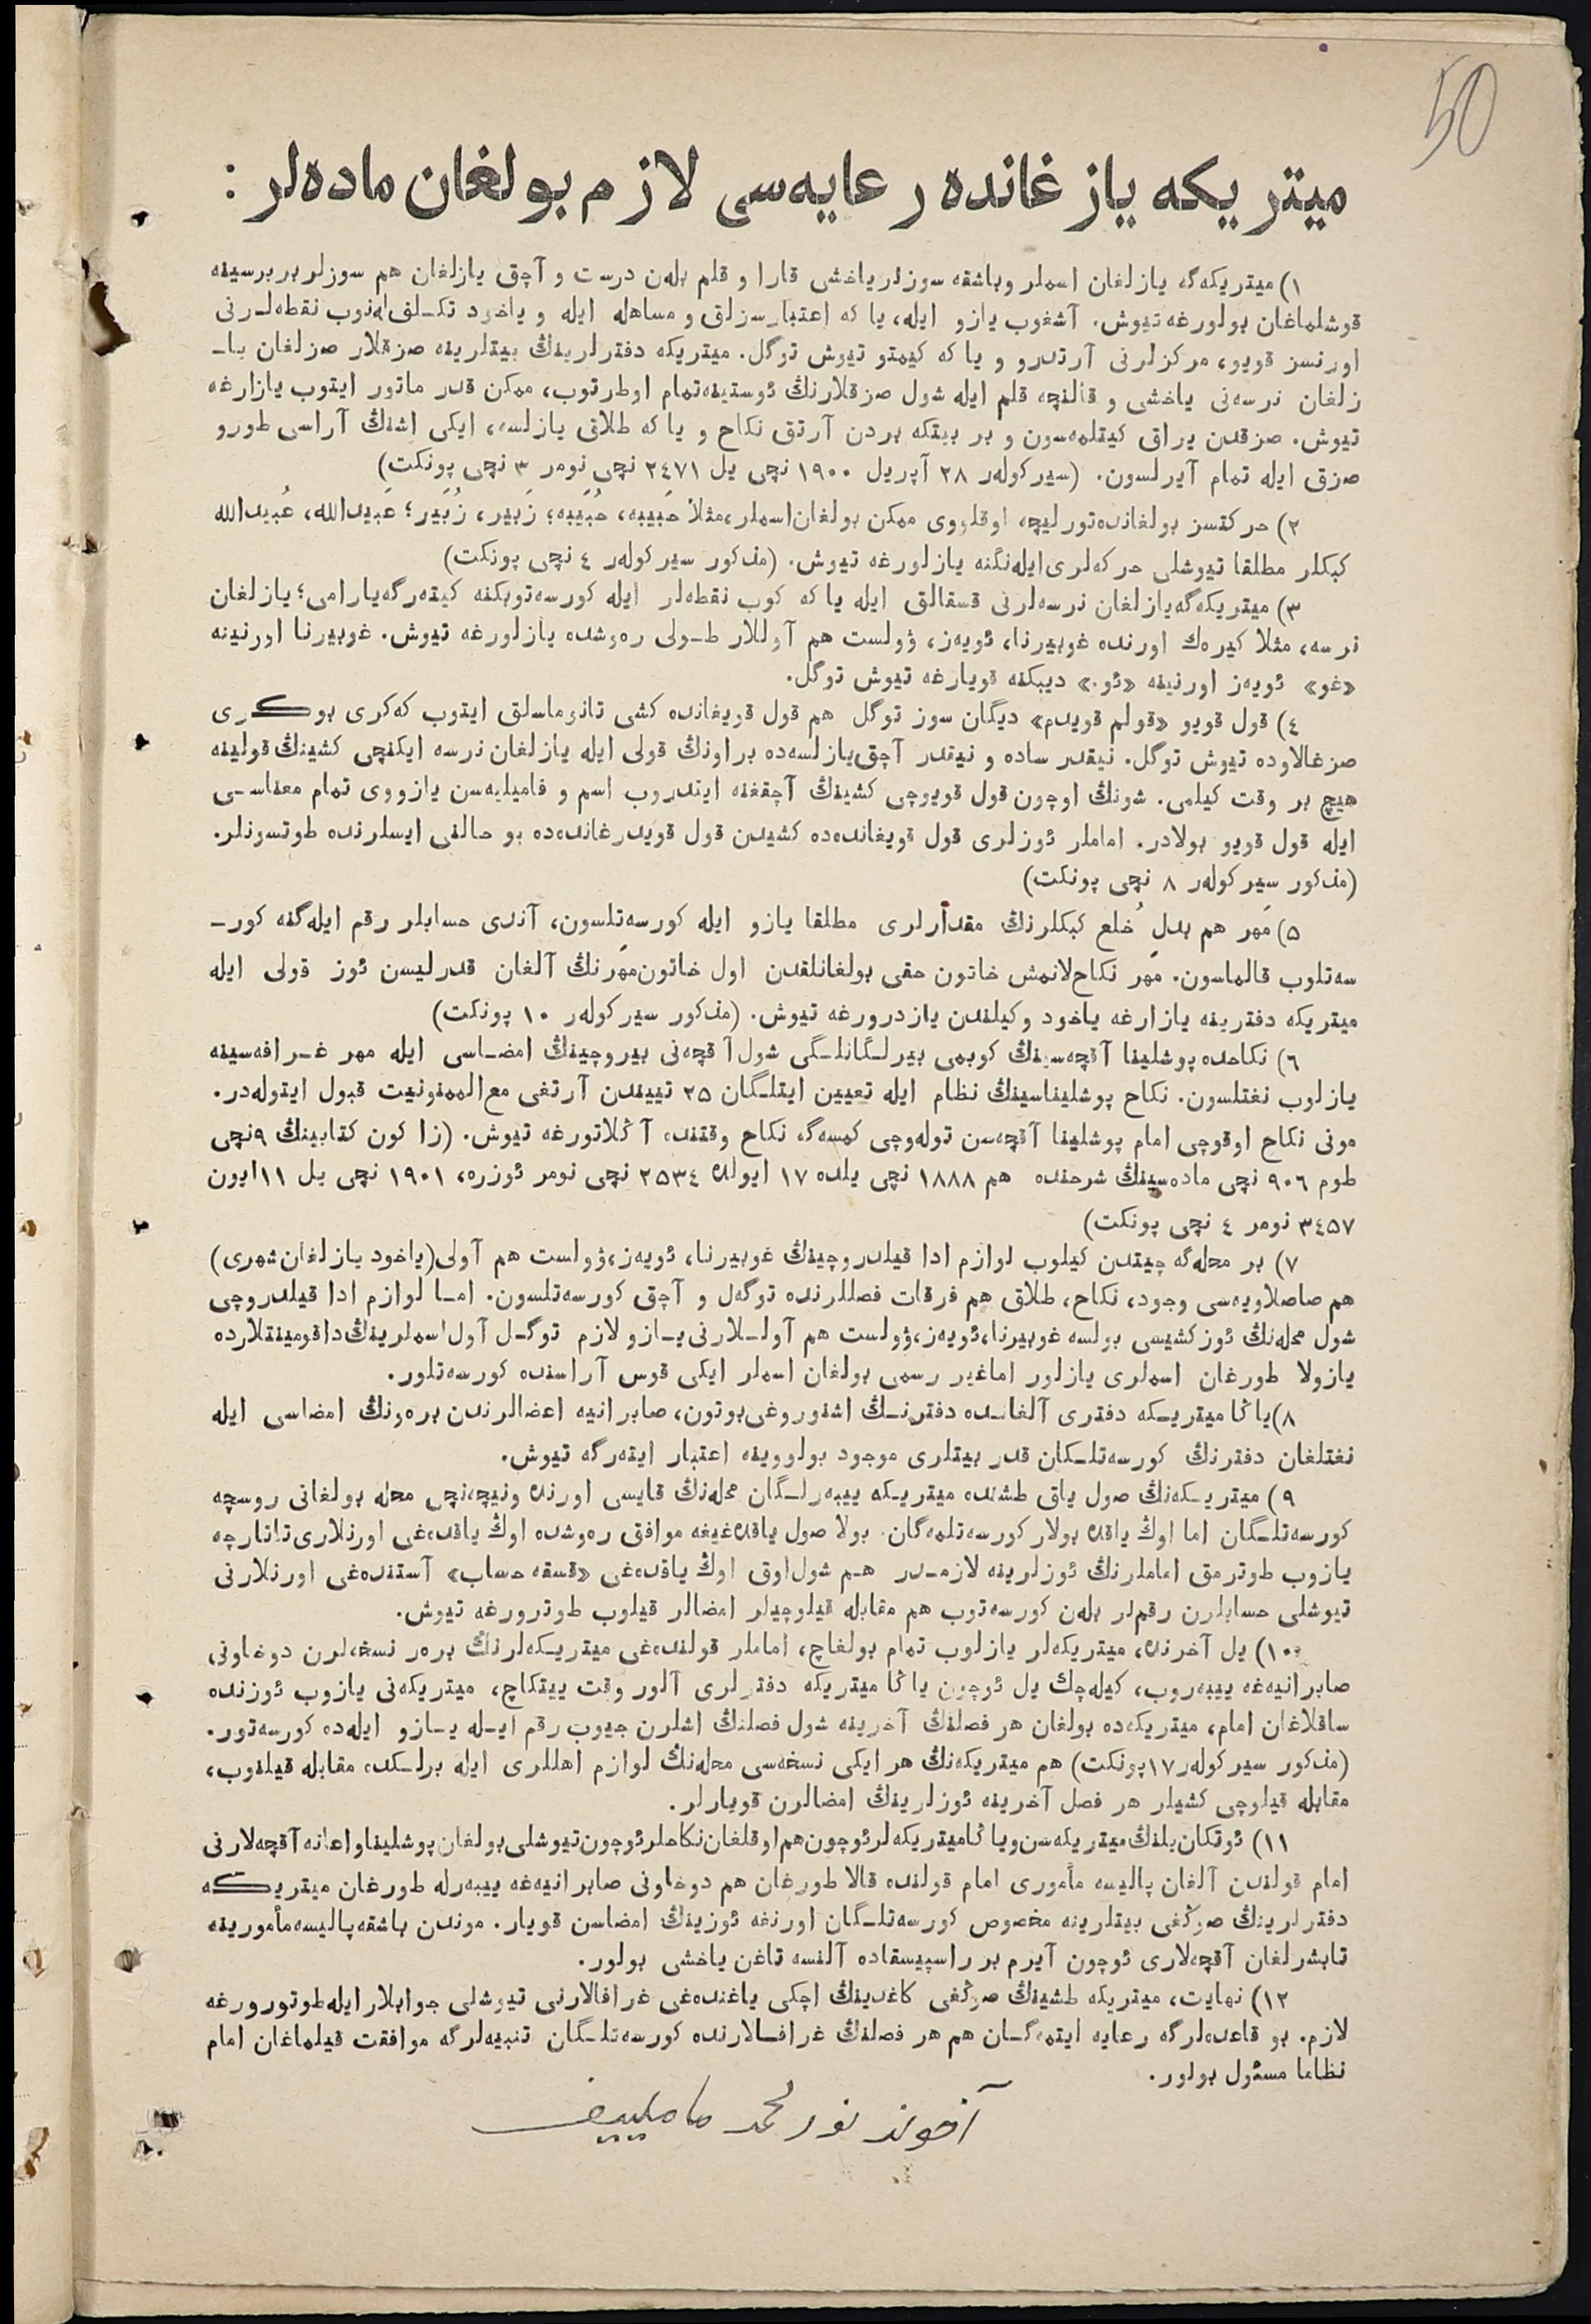 50
میتریكه یازغانده رعایه‌سی لازم بولغان ماده‌لر :
١) میتریكه‌گه یازلغان اسملر وباشقه سوزلر یاخشی قارا و قلم بله‌ن درست و آچق یازلغان هم سوزلر بربرسینه
قوشلماغان بولورغه تیوش. آشغوب یازو ایله، یا كه اعتبارسزلق و مساهله ایله و یاخود تكـلف‌له‌نوب نقطه‌لـرنی
اورنسز قویو، مركزلرنی آرتدرو و یا كه كیمتو تیوش توگل. میتریكه دفترلرینڭ بیتلرینه صزقلار صزلغان یا-
زلغان نرسه‌نی یاخشی و قالنچه قلم ایله شول صزقلارنڭ ئوستینه‌تمام اوطرتوب، ممكن قدر ماتور ایتوب یازارغه
تیوش. صزقدن یراق كیتلمه‌سون و بر بیتكه بردن آرتق نكاح و یا كه طلاق یازلسه، ایكی اشنڭ آراسی طورو
صزق ایله تمام آیرلسون. (سیركوله‌ر ٢٨ آپریل ١٩٠٠ نچی یل ٢٤٧١ نچی نومر ٣ نچی پونكت)
٢) حركتسز بولغانده‌تورلیچه اوقلووی ممكن بولغان‌اسملر،مثلا حَبیبه، حُبَیبه؛ زَبیر، زُبَیر؛ عَبیدالله، عُبیدالله
كبكلر مطلقا تیوشلی حركه‌لری‌ایله‌نگنه یازلورغه تیوش. (مذكور سیركوله‌ر ٤ نچی پونكت)
٣) میتریكه‌گه‌یازلغان نرسه‌لرنی قسقالق ایله یا كه كوب نقطه‌لر ایله كورسه‌توبكنه كیته‌رگه‌یارامی؛ یازلغان
نرسه، مثلا كیره‌ك اورنده غوبیرنا، ئویه‌ز، ۋولست هم آوللار طـولی ره‌وشده یازلورغه تیوش. غوبیرنا اورنینه
«غو» ئویه‌ز اورنینه «ئو.» دیبكنه قویارغه تیوش توگل.
٤) قول قویو «قولم قویدم» دیگان سوز توگل هم قول قویغانده كشی تانوماسلق ایتوب كه‌كری بوكـری
صزغالاوده تیوش توگل. نیقدر ساده و نیندر آچق‌یازلسه‌ده براونڭ قولی ایله یازلغان نرسه ایكنچی كشینڭ قولینه
هیچ بر وقت كیلمی. شونڭ اوچون قول قویوچی كشینڭ آچقغنه ایتدروب اسم و فامیلیه‌سن یازووی تمام معناسـی
ایله قول قویو بولادر. اماملر ئوزلری قول قویغانده‌ده كشیدن قول قویدرغانده‌ده بو حالنی ایسلرنده طوتسونلر.
(مذكور سیركوله‌ر ٨ نچی پونكت)
٥) مَهر هم بدلِ خُلع كبكلرنڭ مقدارلری مطلقا یازو ایله كورسه‌تلسون، آندی حسابلر رقم ایله‌گنه كور-
سه‌تلوب قالماسون. مَهر نكاح‌لانمش خاتون حقی بولغانلقدن اول خاتون‌مَهرنڭ آلغان قدرلیسن ئوز قولی ایله
میتریكه دفترینه یازارغه یاخود وكیلندن یازدرورغه تیوش. (مذكور سیركوله‌ر ١٠ پونكت)
٦) نكاحده پوشلینا آقچه‌سینڭ كوبمی بیرلـگانلـگی شول آقچه‌نی بیروچینڭ امضـاسی ایله مهر غـرافه‌سینه
یازلوب نغتلسون. نكاح پوشلیناسینڭ نظام ایله تعیین ایتلـگان ٢٥ تییندن آرتغی مع‌الممنونیت قبول ایتوله‌در.
مونی نكاح اوقوچی امام پوشلینا آقچه‌سن توله‌وچی كمسه‌گه نكاح وقتنده آڭلاتورغه تیوش. (زاكون كتابینڭ ٩نچی
طوم ٩٠٦ نچی ماده‌سینڭ شرحنده هم ١٨٨٨ نچی یلده ١٧ ایولده ٢٥٣٤ نچی نومر ئوزره، ١٩٠١ نچی یل ١١ایون
٣٤٥٧ نومر ٤ نچی پونكت)
٧) بر محله‌گه چیتدن كیلوب لوازم ادا قیلدروچینڭ غوبیرنا، ئویه‌ز،ۋولست هم آولی(یاخود یازلغان‌شهری)
هم صاصلاویه‌سی وجود، نكاح، طلاق هم فرقات فصللرنده توگه‌ل و آچق كورسه‌تلسون. امـا لوازم ادا قیلدروچی
شول محله‌نڭ ئوز كشیسی بولسه غوبیرنا،ئویه‌ز،ۋولست هم آولـلارنی یـازو لازم توگـل آول اسملرینڭ‌داقومینتلارده
یازولا طورغان اسملری یازلور اماغیر رسمی بولغان اسملر ایكی قوس آراسنده كورسه‌تلور.
٨)یاڭا میتریـكه دفتری آلغانـده دفترنـڭ اشنوروغی‌بوتون، صابرانیه اعضالرندن بره‌ونڭ امضاسی ایله
نغتلغان دفترنڭ كورسه‌تلـكان قدر بیتلری موجود بولووینه اعتبار ایته‌رگه تیوش.
٩) میتریـكه‌نڭ صول یاق طشنده میتریـكه ییبه‌رلـگان محله‌نڭ قایسی اورنده ونیچه‌نچی محله بولغانی روسچه
كورسه‌تلـگان اما اوڭ یاقده بولار كورسه‌تلمه‌گان. بولا صول یاقده‌غیغه موافق ره‌وشده اوڭ یاقده‌غی اورنلاری‌تاتارچه
یازوب طوترمق اماملرنڭ ئوزلرینه لازمـدر هـم شول‌اوق اوڭ یاقده‌غی «قسقه حساب» آستنده‌غی اورنلارنی
تیوشلی حسابلرن رقم‌لر بله‌ن كورسه‌توب هم مقابله قیلوچیلر امضالر قیلوب طوترورغه تیوش.
١٠) یل آخرنده، میتریكه‌لر یازلوب تمام بولغاچ، اماملر قولنده‌غی میتریـكه‌لرنڭ بره‌ر نسخه‌لرن دوخاونی
صابرانیه‌غه ییبه‌روب، كیله‌چك یل ئوچون یاڭا میتریكه دفترلری آلور وقت ییتكاچ، میتریكه‌نی یازوب ئوزنده
ساقلاغان امام، میتریكه‌ده بولغان هر فصلنڭ آخرینه شول فصلنڭ اشلرن جیوب رقم ایـله یـازو ایله‌ده كورسه‌تور.
(مذكور سیركوله‌ر١٧پونكت) هم میتریكه‌نڭ هر ایكی نسخه‌سی محله‌نڭ لوازم اهللری ایله برلـكده مقابله قیلنوب،
مقابله قیلوچی كشیلر هر فصل آخرینه ئوزلرینڭ امضالرن قویارلر.
١١) ئوتكان‌یلنڭ‌میتریكه‌سن‌ویاڭامیتریكه‌لرئوچون‌هم‌اوقلغان‌نكاحلرئوچون‌تیوشلی‌بولغان‌پوشلیناواعانه‌آقچه‌لارنی
امام قولندن آلغان پالیسه مأموری امام قولنده قالا طورغان هم دوخاونی صابرانیه‌غه ییبه‌رله طورغان میتریـكه
دفترلرینڭ صوڭغی بیتلرینه مخصوص كورسه‌تلـگان اورنغه ئوزینڭ امضاسن قویار. موندن باشقه‌پالیسه‌مأمورینه
تابشرلغان آقچه‌لاری ئوچون آیرم بر راسپیسقاده آلنسه تاغن یاخشی بولور.
١٢) نهایت، میتریكه طشینڭ صوڭغی كاغدینڭ اچكی یاغنده‌غی غرافالارنی تیوشلی جوابلار‌ایله‌طوتورورغه
لازم. بو قاعده‌لرگه رعایه ایتمه‌گـان هم هر فصلنڭ غرافـالارنده كورسه‌تلـگان تنبیه‌لرگه موافقت قیلماغان امام
نظاما مسئول بولور.
آخوند نورمحمد مامليیف